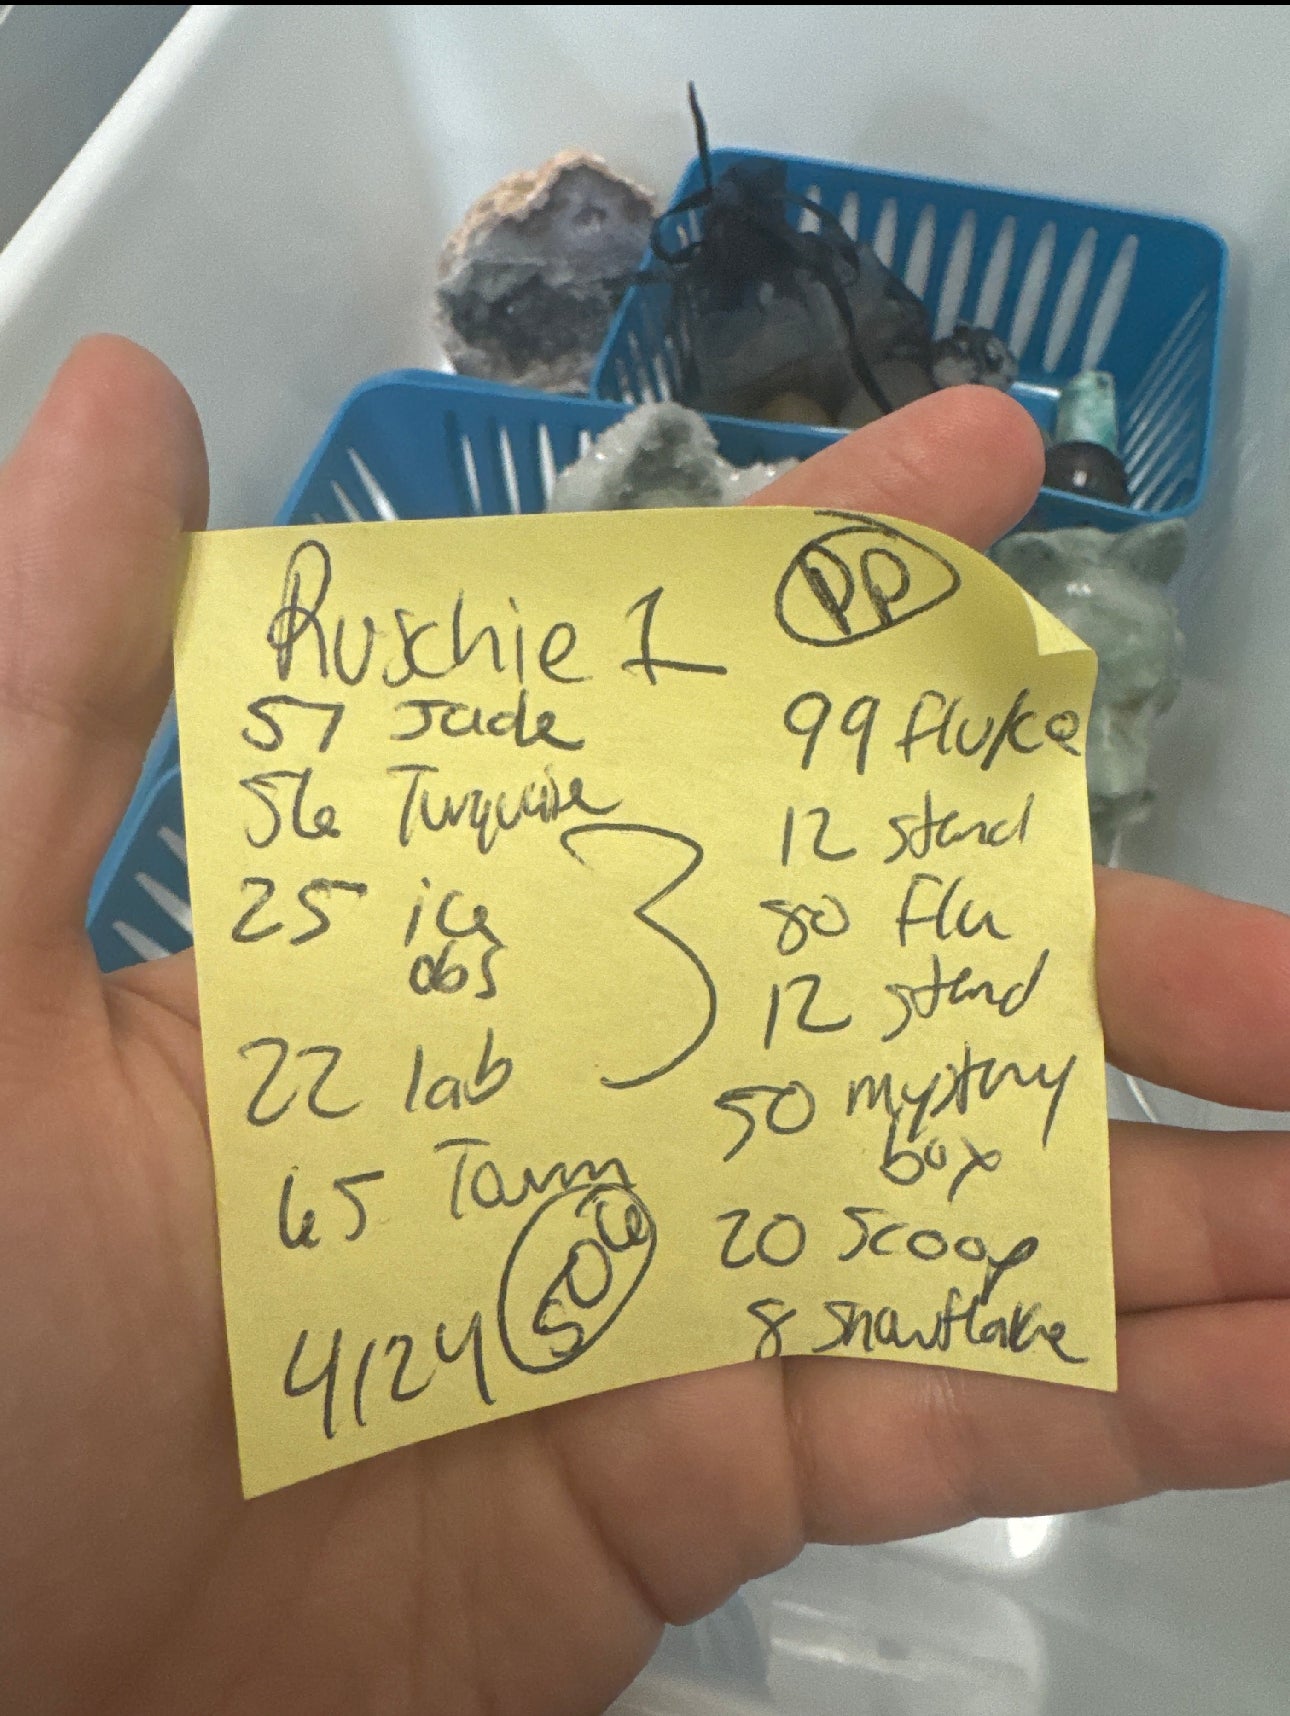 Ruschie 1
PP
57 Jade
56 Turquoise
25 ice
obs
22 lab
65
50
4124
99 fluke
12 stand
80 Flu
12 stand
50 mystery
box
20 scoop
8 snowflake